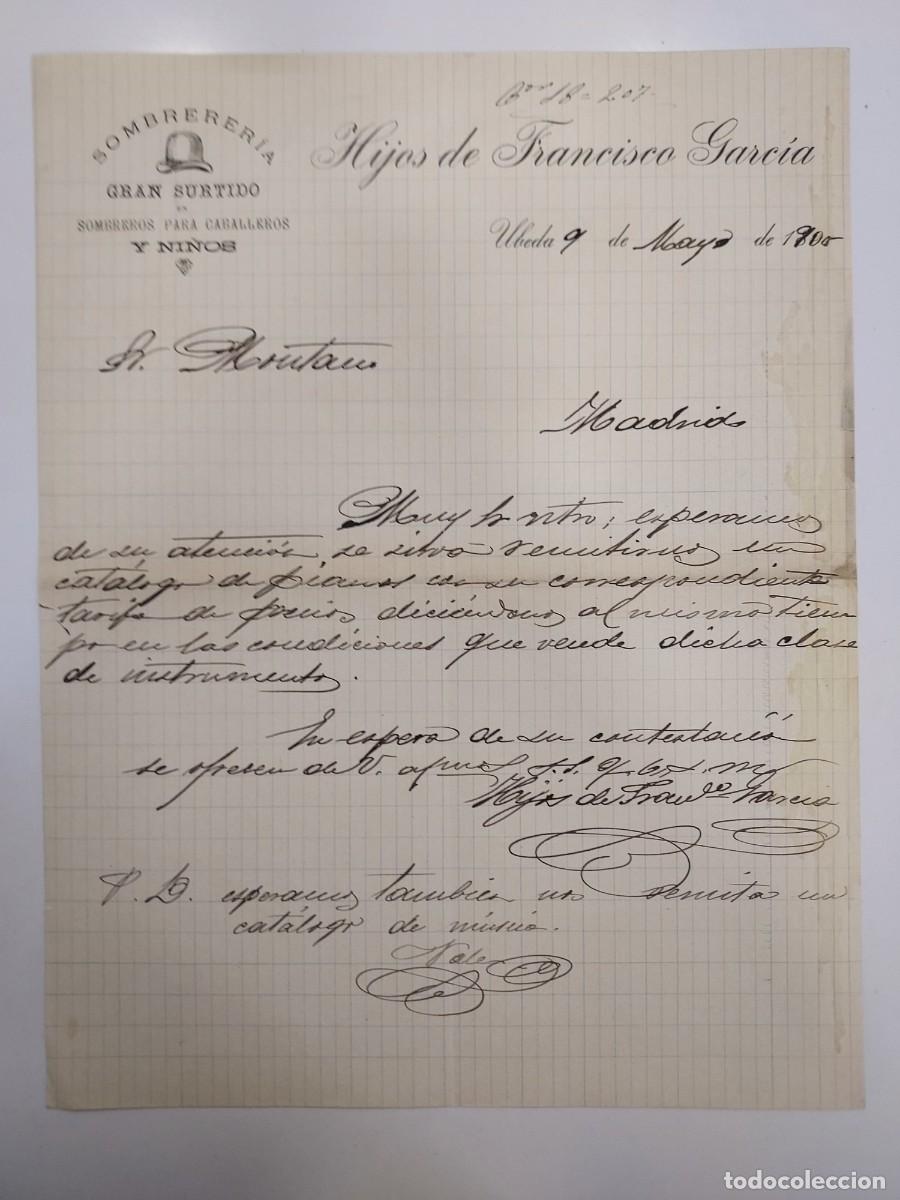 SOMBRERERÍA
GRAN SURTIDO
EN
SOMBREROS PARA CABALLEROS
Y NIÑOS
Hijos de Francisco García
Ubeda 9 de Mayo de 1900
Sr. Montano
Madrid
Muy Sr ntro; esperamos
de su atención se sirva remitirnos un
catálogo de pianos con su correspondiente
tarifa de precios diciéndonos al mismo tiem
po en las condiciones que vende dicha clase
de instrumentos.
En espera de su contestación
se ofrecen de V. afmos s.s. q.b.s.m.
Hijos de Franco García
P. D. esperamos tambien nos remita un
catálogo de música.
Vale
todocoleccion